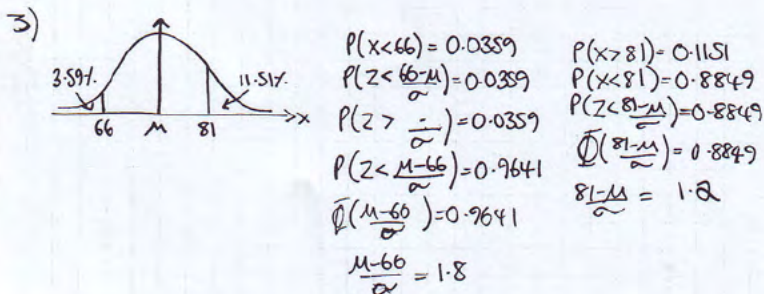 3)
3.59%.
11.51%.
66 μ 81 >x
P(x<66) = 0.0359
P(z<66-μ/σ)=0.0359
P(z> -/σ)=0.0359
P(z<μ-66/σ)=0.9641
Φ(μ-66/σ)=0.9641
μ-66/σ = 1.8
P(x>81)=0.1151
P(x<81)=0.8849
P(z<81-μ/σ)=0.8849
Φ(81-μ/σ)=0.8849
81-μ/σ = 1.2